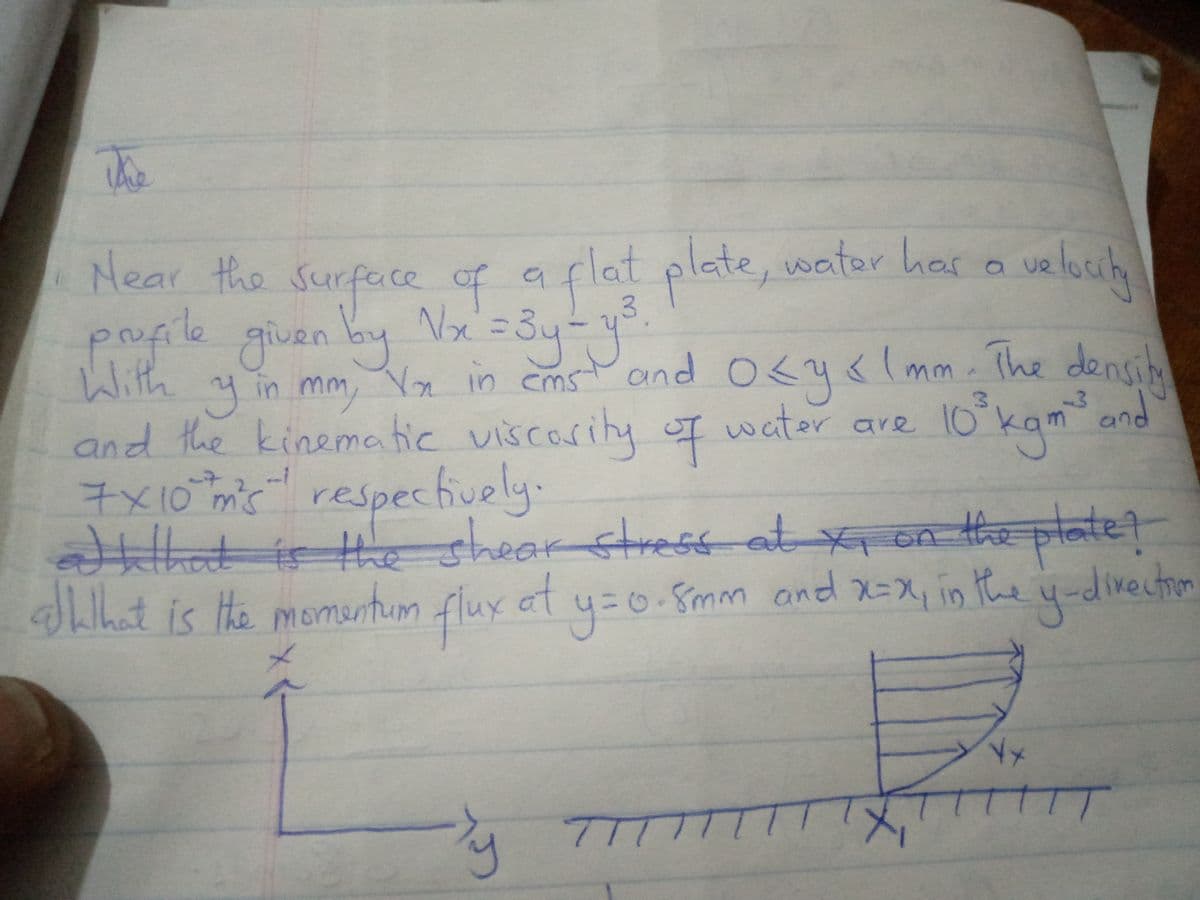 The
Near the surface of a flat plate, water has a velocity
profile given by Vx = 3y - y³.
With y in mm, Vx in cms⁻¹ and 0<y<1mm. The density
and the kinematic viscosity of water are 10³ kgm⁻³ and
7×10⁻⁷m²s⁻¹ respectively.
a) What is the shear stress at x₁ on the plate?
a) What is the momentum flux at y=0.8mm and x=x₁ in the y-direction
x
Vx
y
X₁